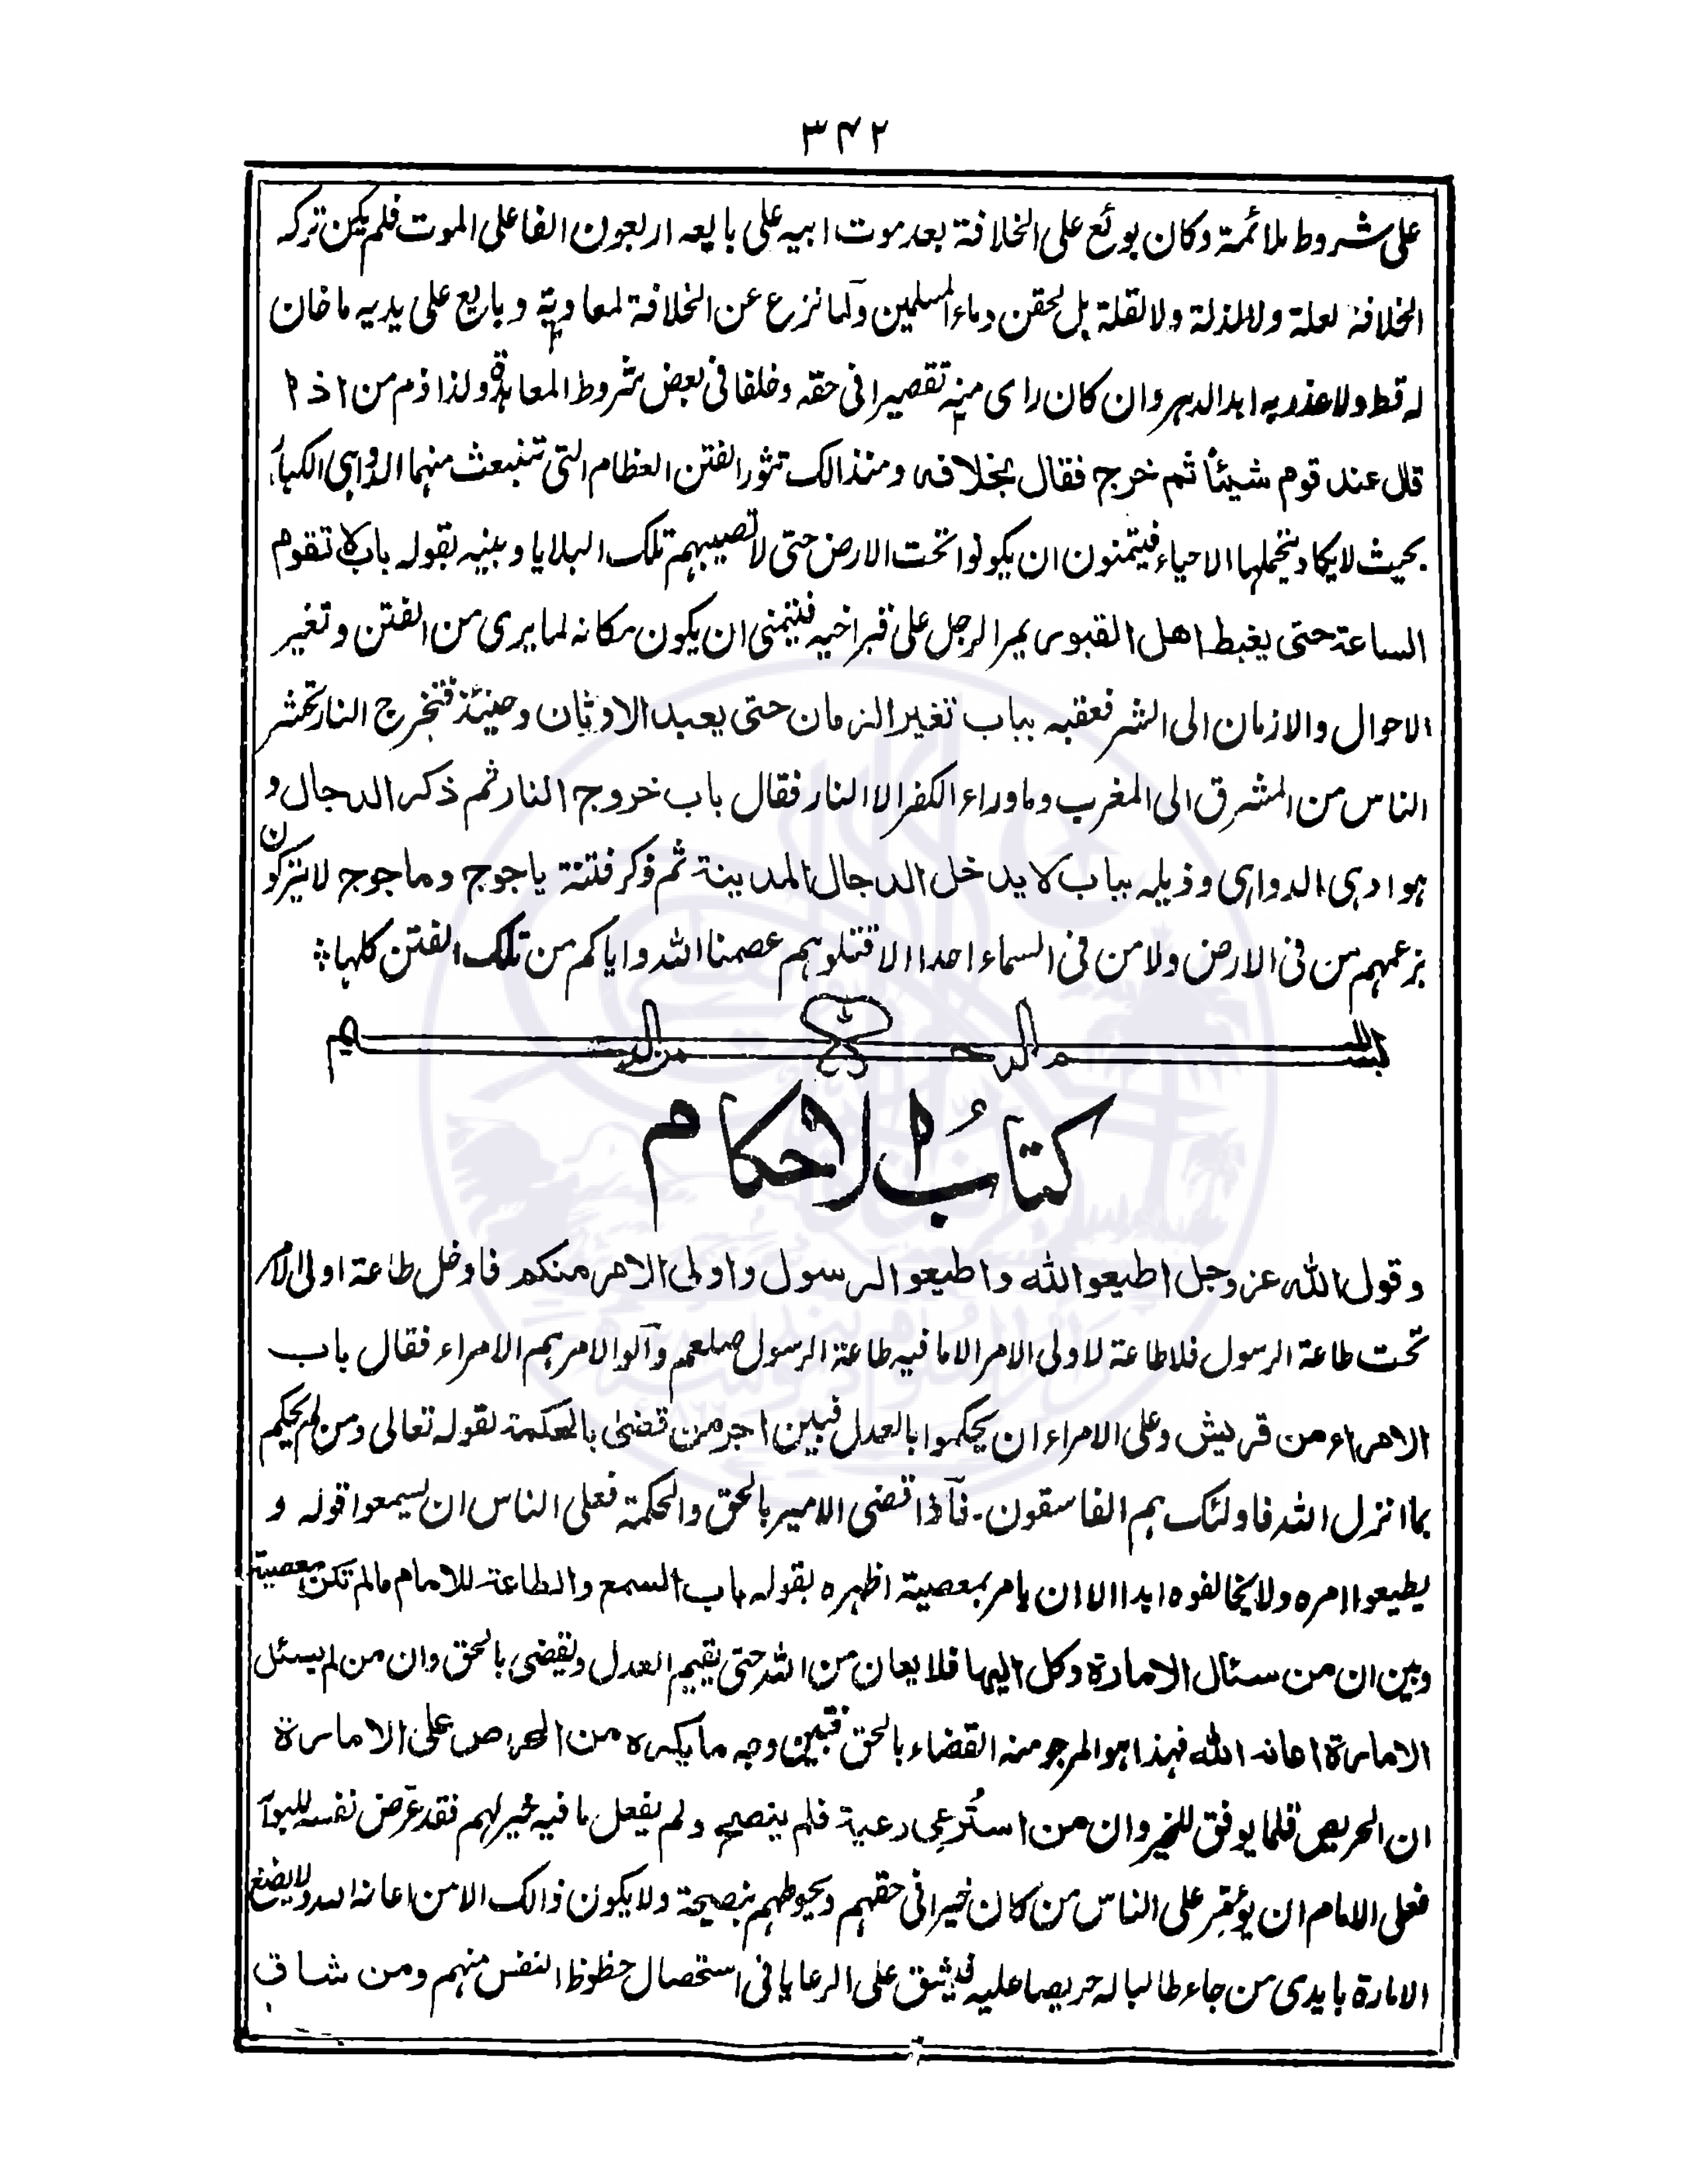 ۳۴۲
على شروط ملائمة وكان بوئع على الخلافة بعد موت ابيه على بايعه اربعون الفا على الموت فلم يكن تركه
الخلافة لعلة ولا لمذلة ولا لقلة بل لحقن دماء المسلمين ولما نزع عن الخلافة لمعاوية وبايع على يديه ما خان
له قط ولا غدر به ابد الدهر وان كان راى منه تقصيرا فى حقه وخلفا فى بعض شروط المعاهدة ولذا ذم من اذا
قال عند قوم شيئا ثم خرج فقال بخلافه ومنذالك تثور الفتن العظام التى تنبعث منهما الدواهى الكبار
بحيث لا يكاد يتحملها الاحياء فيتمنون ان يكونوا تحت الارض حتى لا تصيبهم تلك البلايا وبينه بقوله باب لا تقوم
الساعة حتى يغبط اهل القبور يمر الرجل على قبر اخيه فيتمنى ان يكون مكانه لما يرى من الفتن وتغير
الاحوال والازمان الى الشر فعقبه بباب تغير الزمان حتى يعبد الاوثان وحينئذ فتخرج النار تحشر
الناس من المشرق الى المغرب وما وراء الكفر الا النار فقال باب خروج النار ثم ذكر الدجال و
هو ادهى الدواهى وذيله بباب لا يدخل الدجال المدينة ثم ذكر فتنة ياجوج وماجوج لا يتركون
بزعمهم من فى الارض ولا من فى السماء احدا الا قتلوهم عصمنا الله واياكم من تلك الفتن كلها
بسم الله الرحمن الرحيم
كتابُ الاحكام
وقول الله عز وجل اطيعوا الله واطيعوا الرسول واولى الامر منكم فادخل طاعة اولى الامر
تحت طاعة الرسول فلا طاعة لاولى الامر الا ما فيه طاعة الرسول صلعم وآلوا الامر هم الامراء فقال باب
الامراء من قريش وعلى الامراء ان يحكموا بالعدل فبين اجر من قضىٰ بالحكمة لقوله تعالى ومن لم يحكم
بما انزل الله فاولئك هم الفاسقون ۔ فآذا قضى الامير بالحق والحكمة فعلى الناس ان يسمعوا قوله و
يطيعوا امره ولا يخالفوه ابدا الا ان يامر بمعصية اظهره بقوله باب السمع والطاعة للامام مالم تكن معصية
وبين ان من سئال الامارة وكل اليها فلا يعان من الله حتى يقيم العدل ويقضى بالحق وان من لم يسئل
الامارة اعانه الله فهذا هو المرجو منه القضاء بالحق فتبين وجه ما يكره من الحرص على الامارة
ان الحريص قلما يوفق للخير وان من استُرعِى رعية فلم ينصح ولم يفعل ما فيه خير لهم فقد عرض نفسه للبوآ
فعلى الامام ان يؤمّر على الناس من كان خيرا فى حقهم ويحوطهم بنصيحة ولا يكون ذالك الا من اعانه الله ولا يضع
الامارة بايدى من جاء طالبا له حريصا عليه فيشق على الرعايا فى استحصال حظوظ النفس منهم ومن شاق